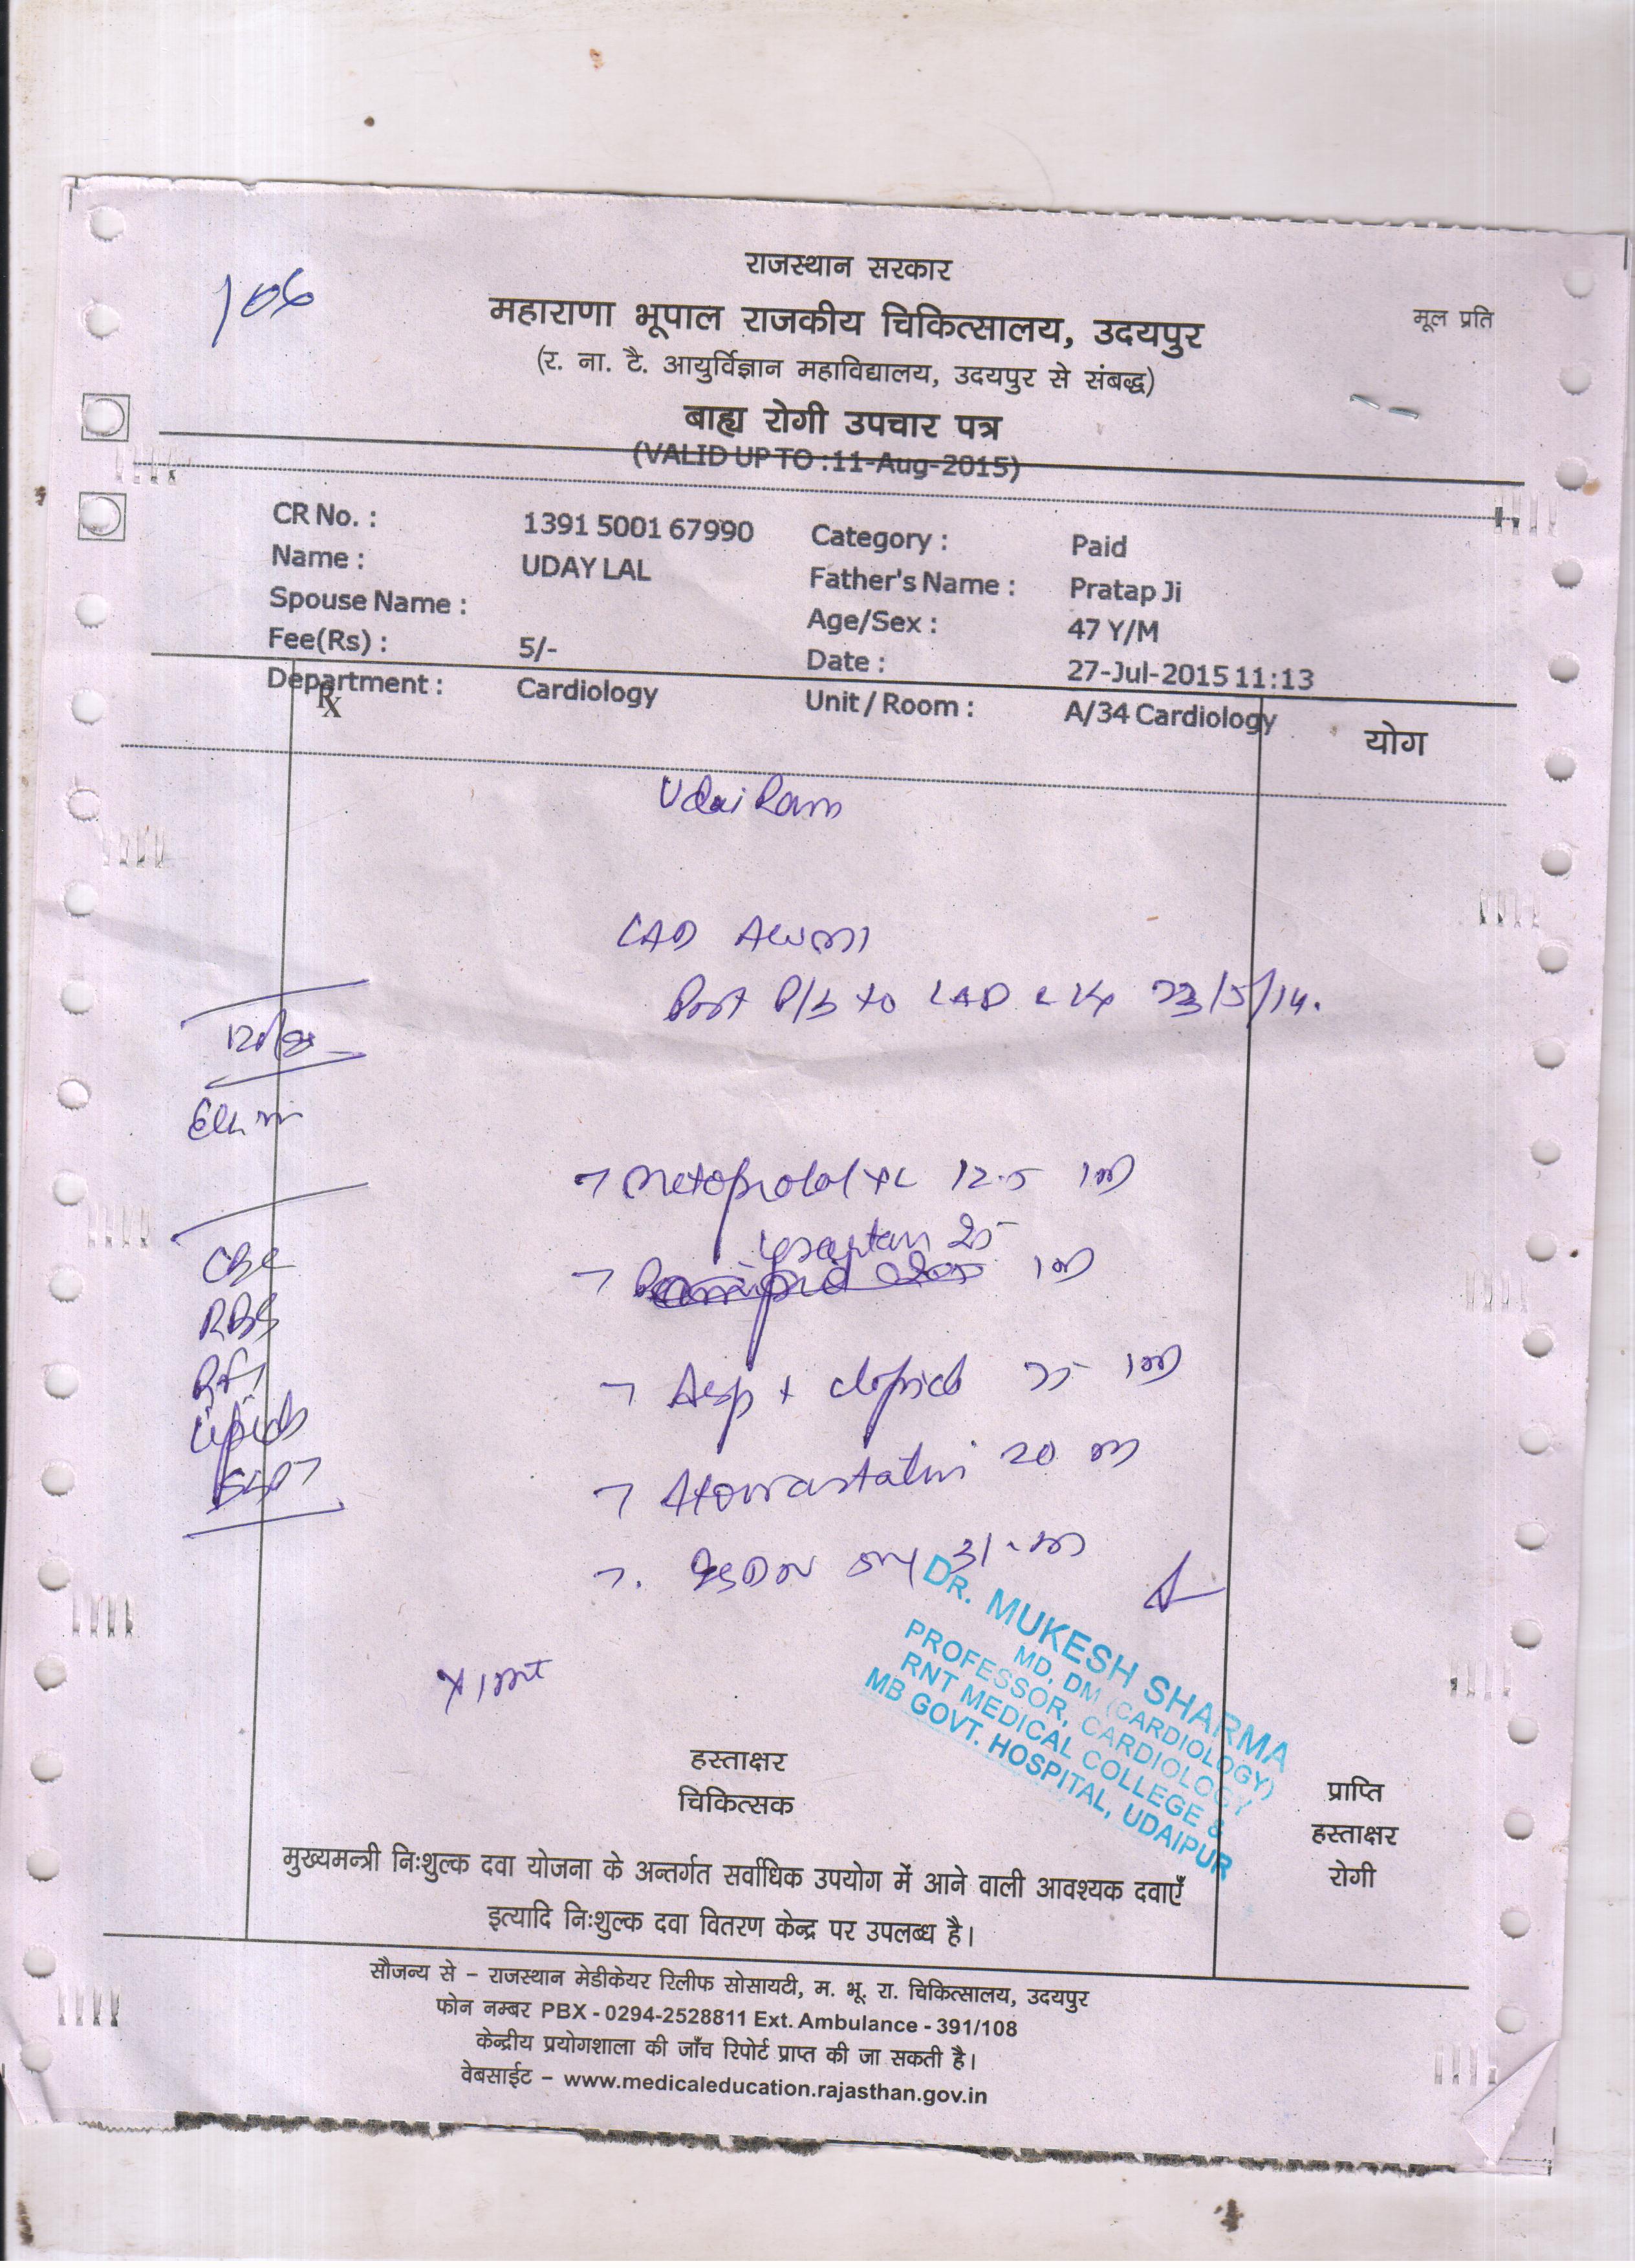 106
राजस्थान सरकार
महाराणा भूपाल राजकीय चिकित्सालय, उदयपुर
मूल प्रति
(र. ना. टै. आयुर्विज्ञान महाविद्यालय, उदयपुर से संबद्ध)
बाह्य रोगी उपचार पत्र
(VALID UP TO :11-Aug-2015)
CR No. : 1391 5001 67990 Category : Paid
Name : UDAY LAL Father's Name : Pratap Ji
Spouse Name : Age/Sex : 47 Y/M
Fee(Rs) : 5/- Date : 27-Jul-2015 11:13
Department : Cardiology Unit / Room : A/34 Cardiology
Rx
योग
Udai Ram
CAD AWMI
Post to LAD 23/5/14.
Metoprolol XL 12.5
25
Asp + clopid 75
Atorvastatin 20
CBC
RBS
RFT
Lipids
SGPT
DR. MUKESH SHARMA
MD, DM (CARDIOLOGY)
PROFESSOR, CARDIOLOGY
RNT MEDICAL COLLEGE &
MB GOVT. HOSPITAL, UDAIPUR
हस्ताक्षर
चिकित्सक
प्राप्ति
हस्ताक्षर
रोगी
मुख्यमन्त्री निःशुल्क दवा योजना के अन्तर्गत सर्वाधिक उपयोग में आने वाली आवश्यक दवाएँ
इत्यादि निःशुल्क दवा वितरण केन्द्र पर उपलब्ध है।
सौजन्य से – राजस्थान मेडीकेयर रिलीफ सोसायटी, म. भू. रा. चिकित्सालय, उदयपुर
फोन नम्बर PBX - 0294-2528811 Ext. Ambulance - 391/108
केन्द्रीय प्रयोगशाला की जाँच रिपोर्ट प्राप्त की जा सकती है।
वेबसाईट – www.medicaleducation.rajasthan.gov.in